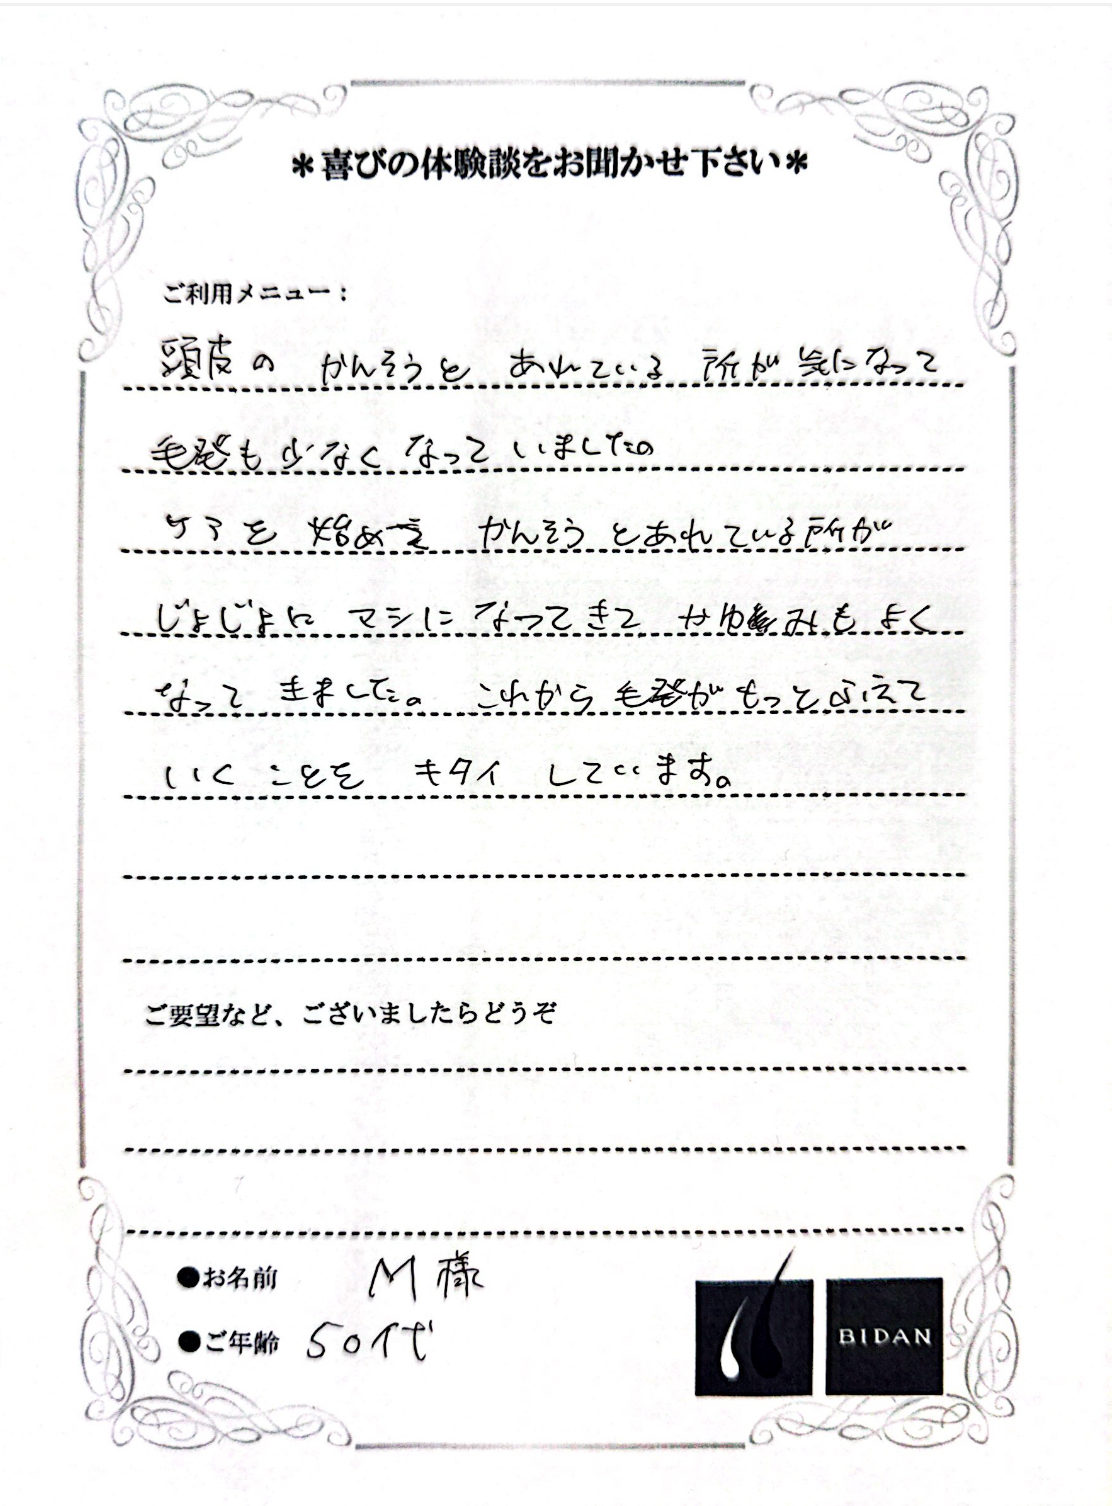 ＊喜びの体験談をお聞かせ下さい＊
ご利用メニュー：
頭皮の かんそうと あれている 所が 気になって
毛髪も 少なく なって いました。
ケアを 始めて かんそう とあれている所が
じょじょに マシに なってきて かゆみも よく
なって きました。 これから 毛髪が もっと ふえて
いく ことを キタイ しています。
ご要望など、ございましたらどうぞ
●お名前 M様
●ご年齢 50代
BIDAN